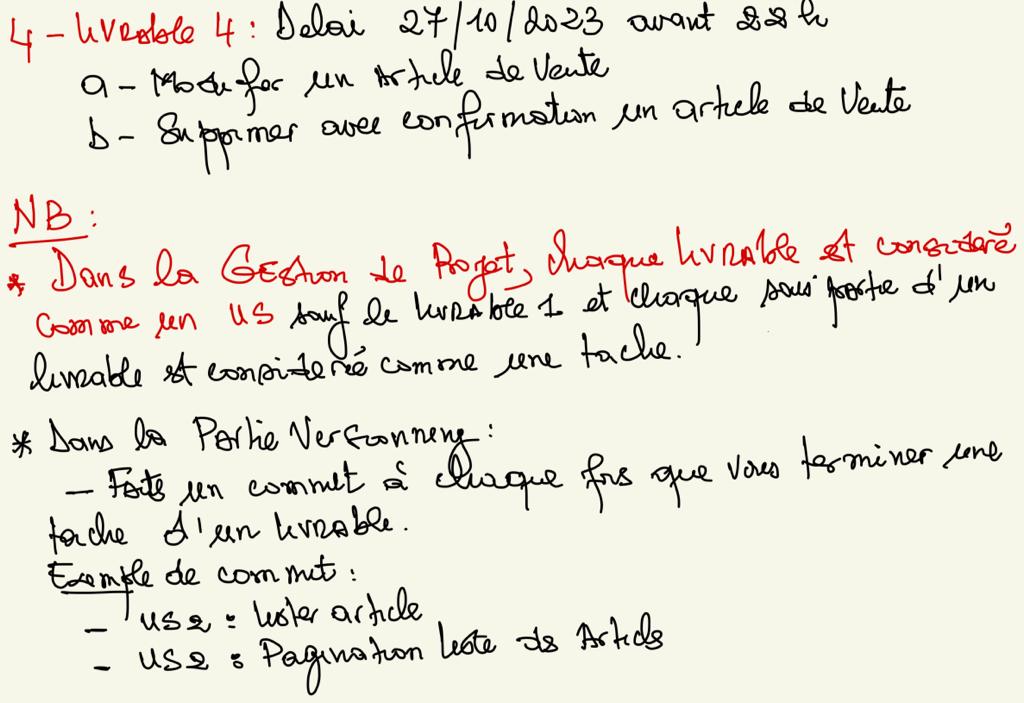 4 - livrable 4 : Delai 27/10/2023 avant 22h
a - Modifer un Article de Vente
b - Supprimer avec confirmation un article de Vente
NB :
* Dans la Gestion de Projet, chaque livrable est consideré
comme un US sauf le livrable 1 et chaque sous partie d'un
livrable est consideré comme une tache.
* Dans la Partie Versionneng :
- Faite un commit à chaque fois que vous terminer une
tache d'un livrable.
Exemple de commit :
- US2 : lister article
- US2 : Pagination liste ds Articls